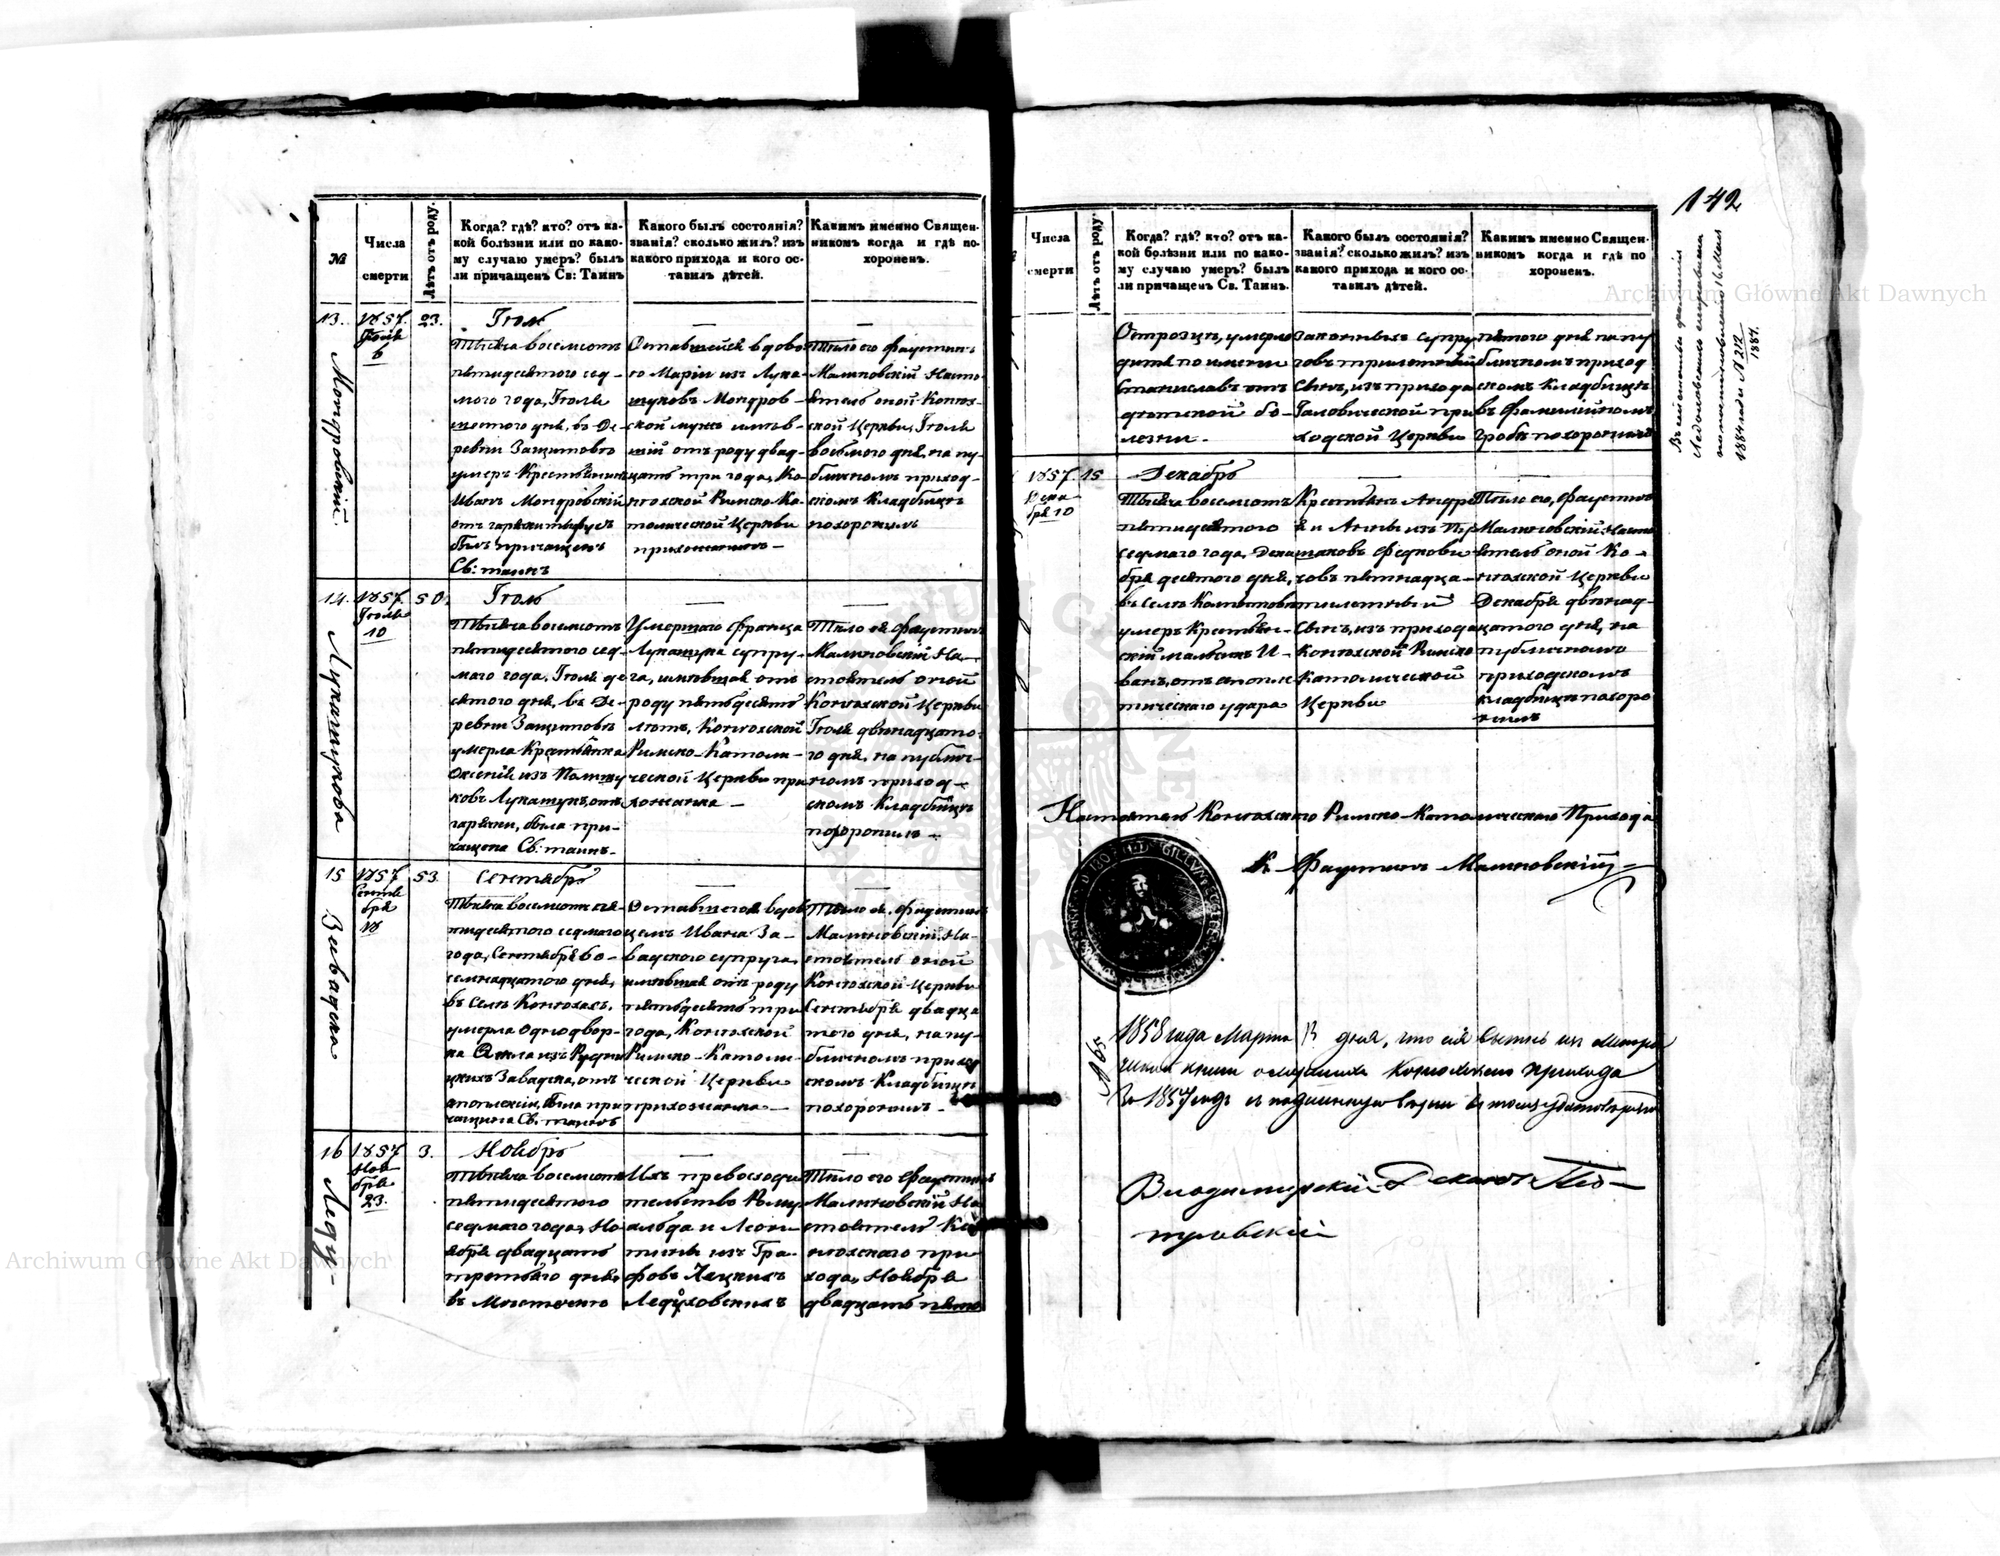 №
Числа смерти
Лѣтъ отъ роду.
Когда? гдѣ? кто? отъ ка-
кой болѣзни или по како-
му случаю умеръ? былъ
ли причащенъ Св: Таинъ
Какого былъ состоянія?
званія? сколько жилъ? изъ
какого прихода и кого ос-
тавилъ дѣтей.
Какимъ именно Священ-
никомъ когда и гдѣ по-
хороненъ.
13.
1857.
Іюля
6
23.
Мондровскій.
Іюль
Тысяча восемсотъ
пятидесятого сед-
мого года, Іюля
шестого дня, въ Де-
ревни Защитовъ
умеръ Крестьянинъ
Иванъ Мондровскій
отъ горячки
былъ причащенъ
Св: таинъ
Оставшейся вдово
го Маріи изъ Лука-
щуковъ Мондров-
ской мужъ имѣв-
шій отъ роду двад-
цать три года, Ко-
нюхской Римско-Ка-
толической Церкви
прихожанинъ —
Тѣло его Фаустинъ
Малиновскій Насто-
ятель оной Конюх-
ской Церкви, Іюля
восьмого дня, на пу-
бличномъ приход-
скомъ Кладбищѣ
похоронилъ
14.
1857.
Іюля
10
50.
Лукащукова
Іюль
Тысяча восемсотъ
пятидесятого сед-
маго года, Іюля де-
сятого дня, въ Де-
ревни Защитовъ
умерла Крестьянка
Оксенія изъ
ковъ Лукащукъ, отъ
гарячки, была при-
чащена Св: таинъ.
Умершого Франца
Лукащука супру-
га, имѣвшая отъ
роду пятьдесятъ
лѣтъ, Конюхской
Римско-Католи-
ческой Церкви при
хожанка —
Тѣло ея Фаустинъ
Малиновскій На-
стоятель оной
Конюхской Церкви
Іюля двѣнадцато-
го дня, на публич-
номъ приход-
скомъ Кладбищѣ
похоронилъ —
15
1857
Сентя
бря
18
53.
Завадска
Сентябрь
Тысяча восемсотъ пя-
тидесятого седмого
года, Сентября во-
семнадцатого дня,
въ Селѣ Конюхахъ,
умерла однодвор-
ка Анна изъ Рудни
цкихъ Завадска, отъ
апоплексіи, была при
чащена Св. таинъ
Оставшегося вдов
цемъ Ивана За-
вадского супруга,
имѣвшая отъ роду
пятьдесятъ три
года, Конюхской
Римско-Католи-
ческой Церкви
прихожанка —
Тѣло ея, Фаустинъ
Малиновскій, На-
стоятель оной
Конюхской Церкви
Сентября двадца
того дня, на пу-
бличномъ приход
скомъ Кладбищѣ
похоронилъ —
16
1857
Ноя
бря
23.
3.
Леду-
Ноябрь
Тысяча восемсотъ
пятидесятого
седмаго года, Но-
ября двадцать
третьяго дня,
въ Мѣстечко
Ихъ превосходи
тельство Рому
альда и Леон
тины изъ Гра-
фовъ Лацкихъ
Ледуховскихъ
Тѣло его Фаустинъ
Малиновскій На
стоятель Ко
нюхского при
хода, Ноября
двадцать пято
142
Числа
смерти
Лѣтъ отъ роду.
Когда? гдѣ? кто? отъ ка-
кой болѣзни или по како-
му случаю умеръ? былъ
ли причащенъ Св. Таинъ.
Какого былъ состоянія?
званія? сколько жилъ? изъ
какого прихода и кого ос-
тавилъ дѣтей.
Какимъ именно Священ-
никомъ когда и гдѣ по
хороненъ.
Острозцѣ, умерло
дитя по имени
Станиславъ отъ
дѣтской бо-
лезни.
законныхъ супру
говъ трилетній
сынъ, изъ прихода
Галовической при
ходской Церкви
пятого дня на пу
бличномъ приход
скомъ Кладбищѣ
въ Фамилійномъ
гробѣ похоронилъ
1857.
Дека
бря 10
15
Декабрь
Тысяча восемсотъ
пятидесятого
седмаго года, Дека
бря десятого дня,
въ селѣ
умеръ Крестьян-
скій мальчикъ И-
ванъ, отъ апопле
ктическаго удара
Крестьянъ Андре
я и Анны изъ
Федкови
човъ пятнадца-
тилетный
сынъ, изъ прихода
Конюхской Римско
Католической
Церкви
Тѣло его, Фаустинъ
Малиновскій Насто
ятель оной Ко-
нюхской Церкви
Декабря двѣнад-
цатого дня, на
публичномъ
приходскомъ
кладбищѣ похоро
нилъ
Настоятель Конюхского Римско-Католического Прихода
К. Фаустинъ Малиновскій
1858 года Марта дня, что сія выпись изъ Метри
ческой книги о умершихъ Конюхского прихода
За 1857 годъ съ подлинною вѣрна въ томъ удостовѣряю
Владимирскій Деканъ Піо-
тровскій
Въ сей метрикѣ фамилія
Ледоховскихъ исправлена
по постановленію 16 Июля
1884 года № 212
1884.
Archiwum Główne Akt Dawnych
Archiwum Główne Akt Dawnych